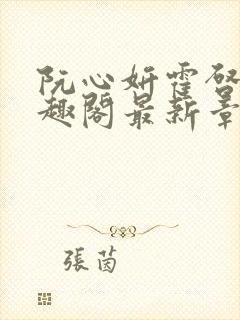 阮心妍霍啓
趣閣最新章
張茵